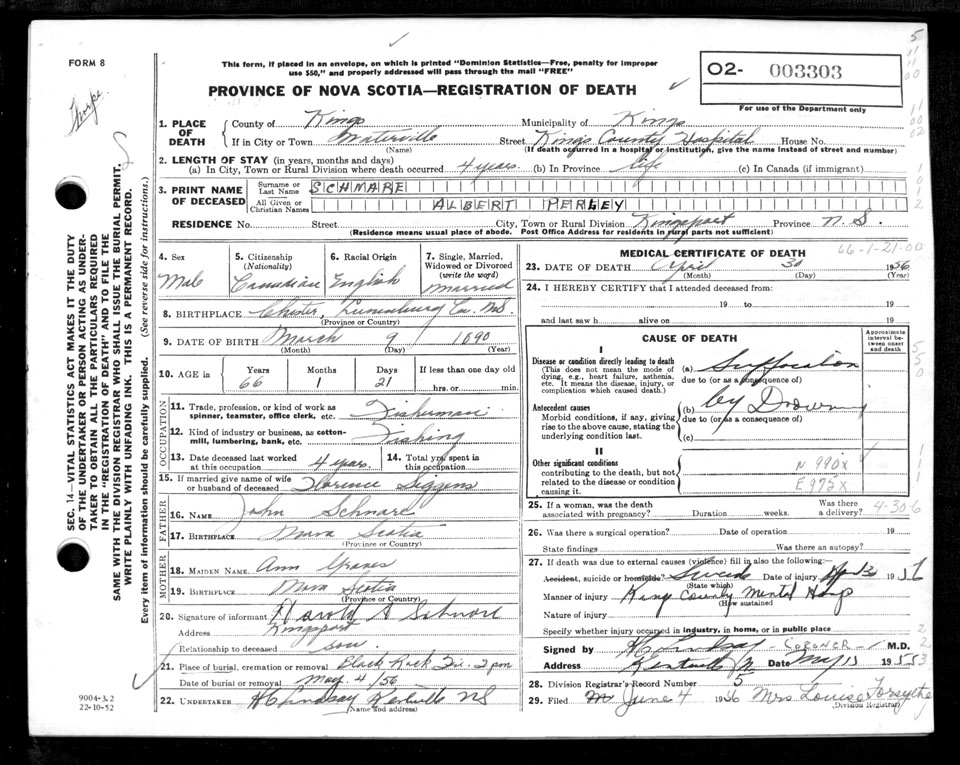 FORM 8
This form, if placed in an envelope, on which is printed "Dominion Statistics—Free, penalty for improper
use $50," and properly addressed will pass through the mail "FREE"
PROVINCE OF NOVA SCOTIA—REGISTRATION OF DEATH
O2- 003303
For use of the Department only
Thorpe
SEC. 14—VITAL STATISTICS ACT MAKES IT THE DUTY
OF THE UNDERTAKER OR PERSON ACTING AS UNDER-
TAKER TO OBTAIN ALL THE PARTICULARS REQUIRED
IN THE "REGISTRATION OF DEATH" AND TO FILE THE
SAME WITH THE DIVISION REGISTRAR WHO SHALL ISSUE THE BURIAL PERMIT.
WRITE PLAINLY WITH UNFADING INK. THIS IS A PERMANENT RECORD.
Every item of information should be carefully supplied. (See reverse side for instructions.)
1. PLACE OF DEATH County of Kings Municipality of Kings
If in City or Town Waterville Street Kings County Hospital House No.
(Name) (If death occurred in a hospital or institution, give the name instead of street and number)
2. LENGTH OF STAY (in years, months and days)
(a) In City, Town or Rural Division where death occurred 4 years (b) In Province life (c) In Canada (if immigrant)
3. PRINT NAME OF DECEASED Surname or Last Name SCHMARE
All Given or Christian Names ALBERT PERLEY
RESIDENCE No. Street City, Town or Rural Division Kingsport Province N.S.
(Residence means usual place of abode. Post Office Address for residents in rural parts not sufficient)
4. Sex Male
5. Citizenship (Nationality) Canadian
6. Racial Origin English
7. Single, Married, Widowed or Divorced (write the word) Married
8. BIRTHPLACE Chester, Lunenburg Co. N.S.
(Province or Country)
9. DATE OF BIRTH March 9 1890
(Month) (Day) (Year)
10. AGE in Years 66 Months 1 Days 21 If less than one day
hrs. or min.
OCCUPATION
11. Trade, profession, or kind of work as spinner, teamster, office clerk, etc. Fisherman
12. Kind of industry or business, as cotton-mill, lumbering, bank, etc. Fishing
13. Date deceased last worked at this occupation 4 years. 14. Total yrs. spent in this occupation
15. If married give name of wife or husband of deceased Florence Siggins
FATHER
16. NAME John Schnare
17. BIRTHPLACE Nova Scotia
(Province or Country)
MOTHER
18. MAIDEN NAME Ann
19. BIRTHPLACE Nova Scotia
(Province or Country)
20. Signature of informant Harold A Schnare
Address Kingsport
Relationship to deceased son
21. Place of burial, cremation or removal Black Rock
Date of burial or removal May 4/56
22. UNDERTAKER H C Lindsay Kentville NS
(Name and address)
9004-3.2
22-10-52
MEDICAL CERTIFICATE OF DEATH
66-1-21-00
23. DATE OF DEATH April 30 1956
(Month) (Day) (Year)
24. I HEREBY CERTIFY that I attended deceased from:
19 to 19
and last saw h alive on 19
CAUSE OF DEATH
Approximate interval between onset and death
I
Disease or condition directly leading to death
(This does not mean the mode of dying, e.g., heart failure, asthenia, etc. It means the disease, injury, or complication which caused death.)
(a) Suffocation
due to (or as a consequence of)
Antecedent causes
Morbid conditions, if any, giving rise to the above cause, stating the underlying condition last.
(b) by Drowning
due to (or as a consequence of)
(c)
II
Other significant conditions
contributing to the death, but not related to the disease or condition causing it.
N 990X
E975X
25. If a woman, was the death associated with pregnancy? Duration weeks. Was there a delivery?
4-30-6
26. Was there a surgical operation? Date of operation 19
State findings Was there an autopsy?
27. If death was due to external causes (violence) fill in also the following:
Accident, suicide or homicide? Suicide Date of injury 1956
(State which)
Manner of injury King County Mental Hosp
(How sustained)
Nature of injury
Specify whether injury occurred in industry, in home, or in public place
Signed by CORONER M.D.
Address Kentville Date May 19
28. Division Registrar's Record Number 5
29. Filed June 4 1956 Mrs Louise Forsythe
Division Registrar